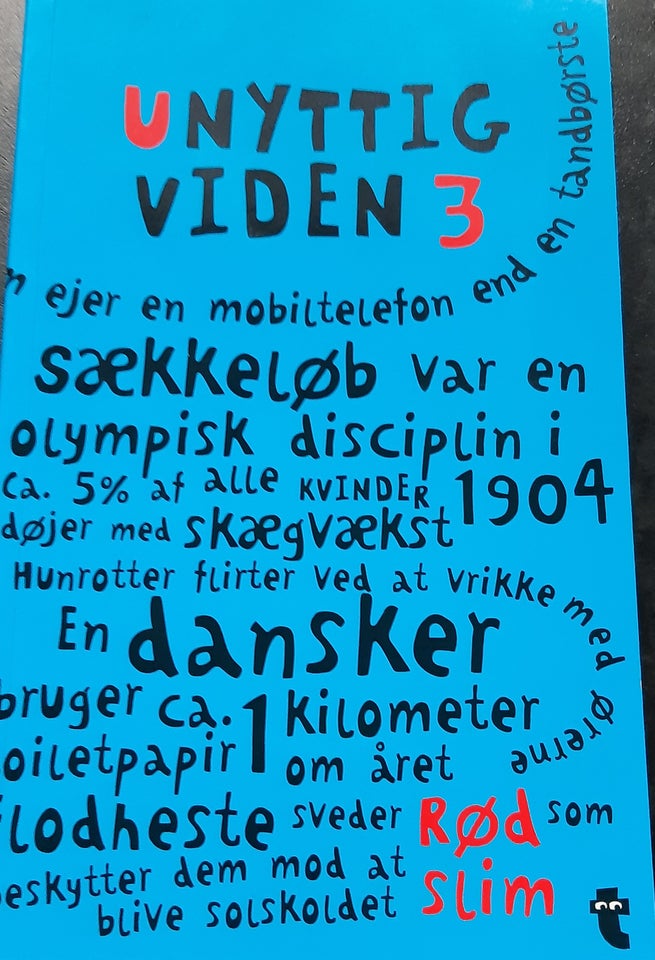 UNYTTIG
VIDEN 3
n ejer en mobiltelefon end en tandbørste
sækkeløb var en
olympisk disciplin i
1904
ca. 5% af alle KVINDER
døjer med skægvækst
Hunrotter flirter ved at vrikke med ørerne
En dansker
bruger ca. 1 kilometer
oiletpapir om året
flodheste sveder RØD som
slim
eskytter dem mod at
blive solskoldet
t